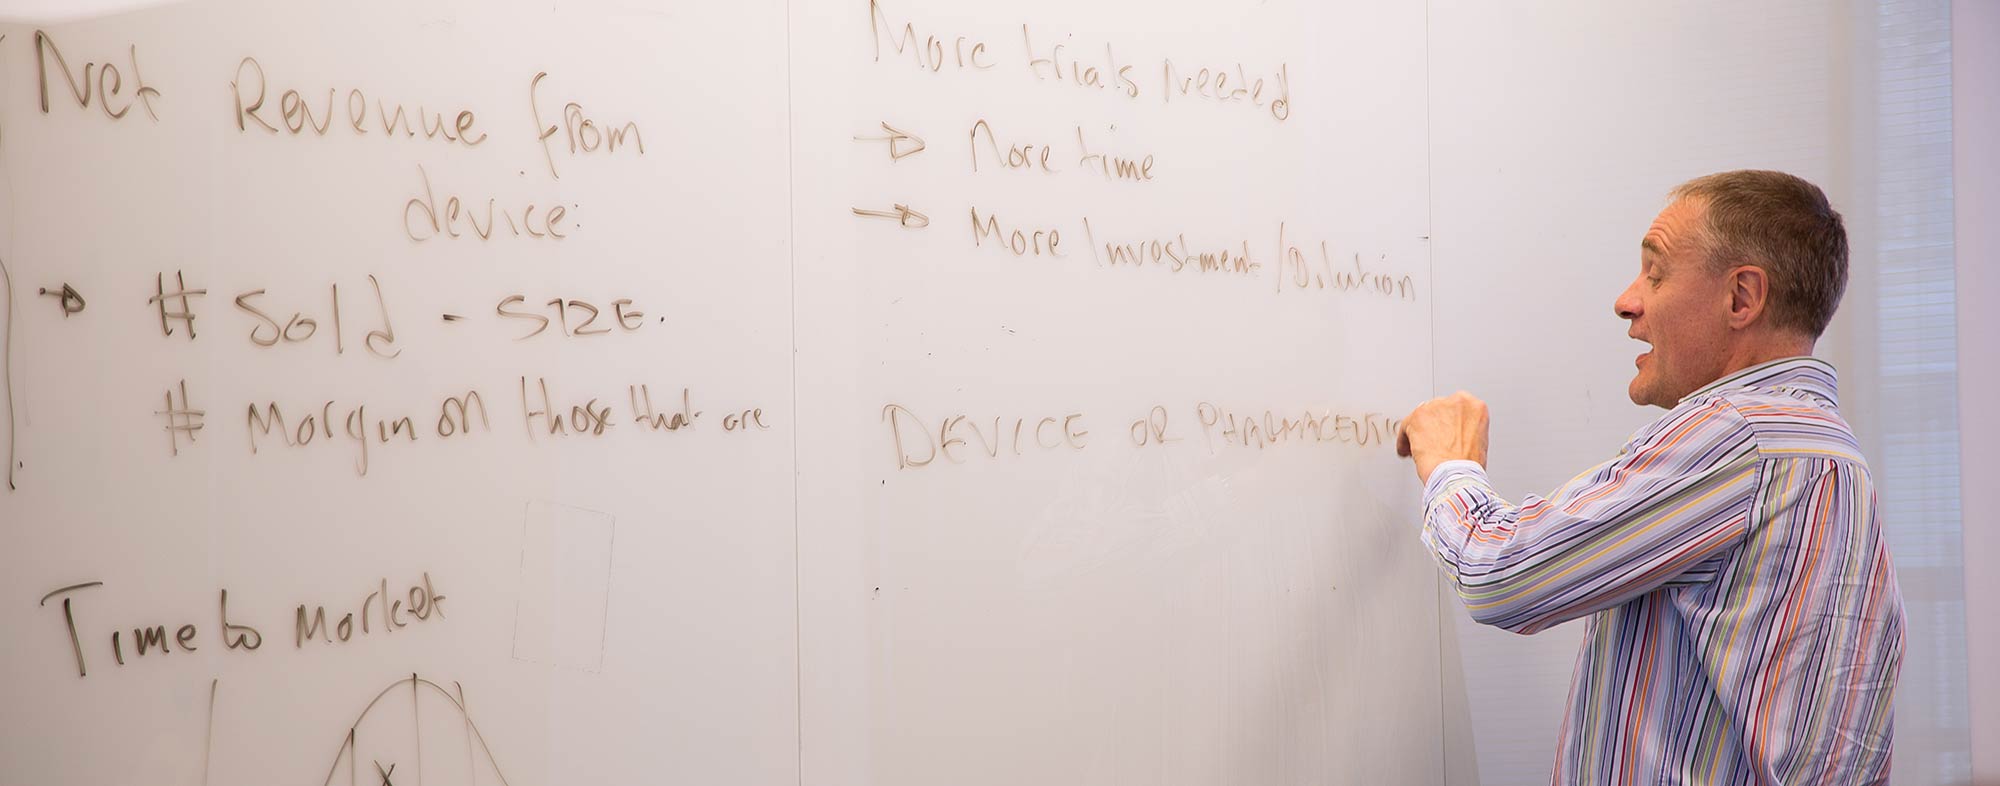 Net Revenue from
device:
# Sold - SIZE.
# Margin on those that are
Time to Market
X
More trials Needed
More time
More Investment / Dilution
DEVICE OR PHARMACEUTIC